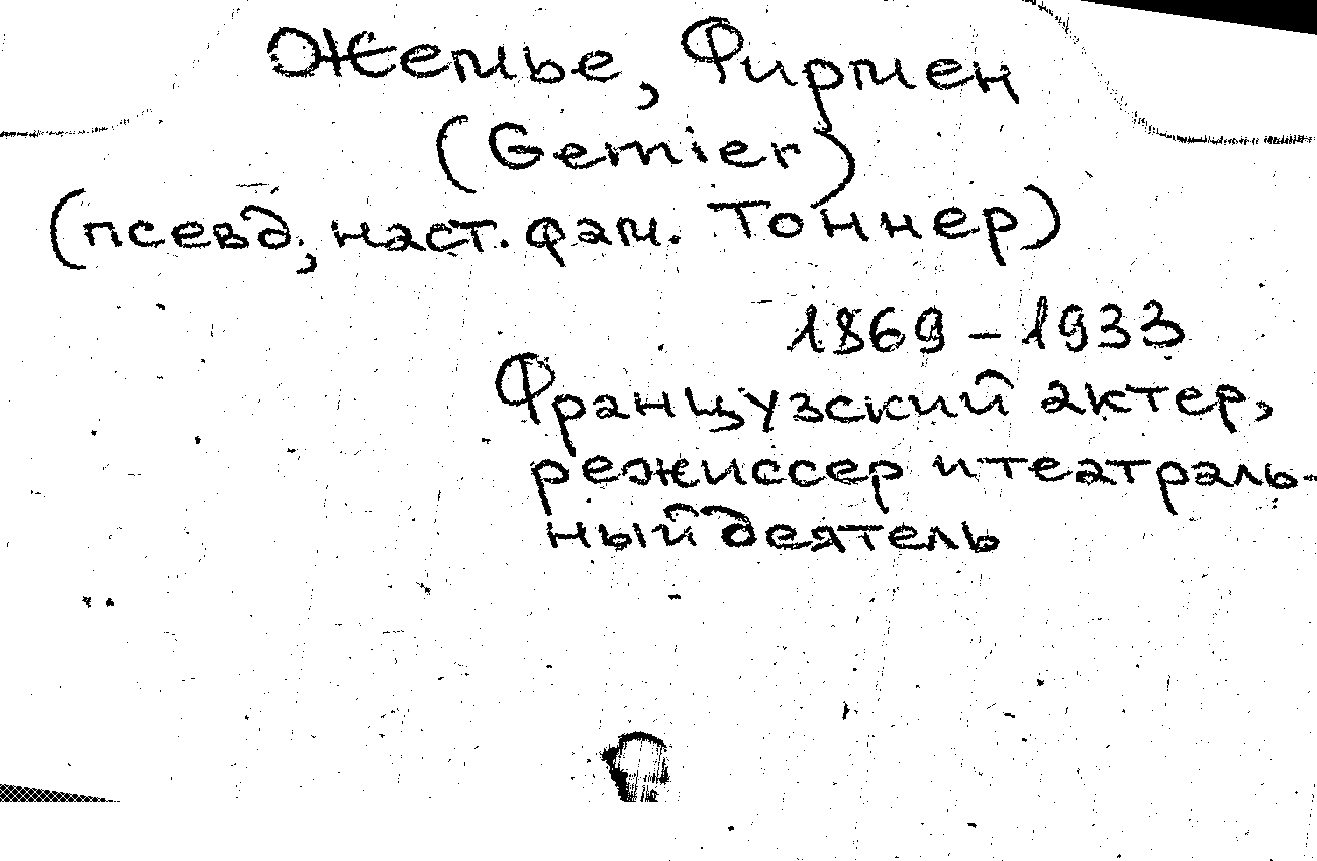 Жемье, Фирмен
(Gemier)
(псевд., наст. фам. Тоннер)
1869 – 1933
Французский актер,
режиссер и театраль-
ный деятель